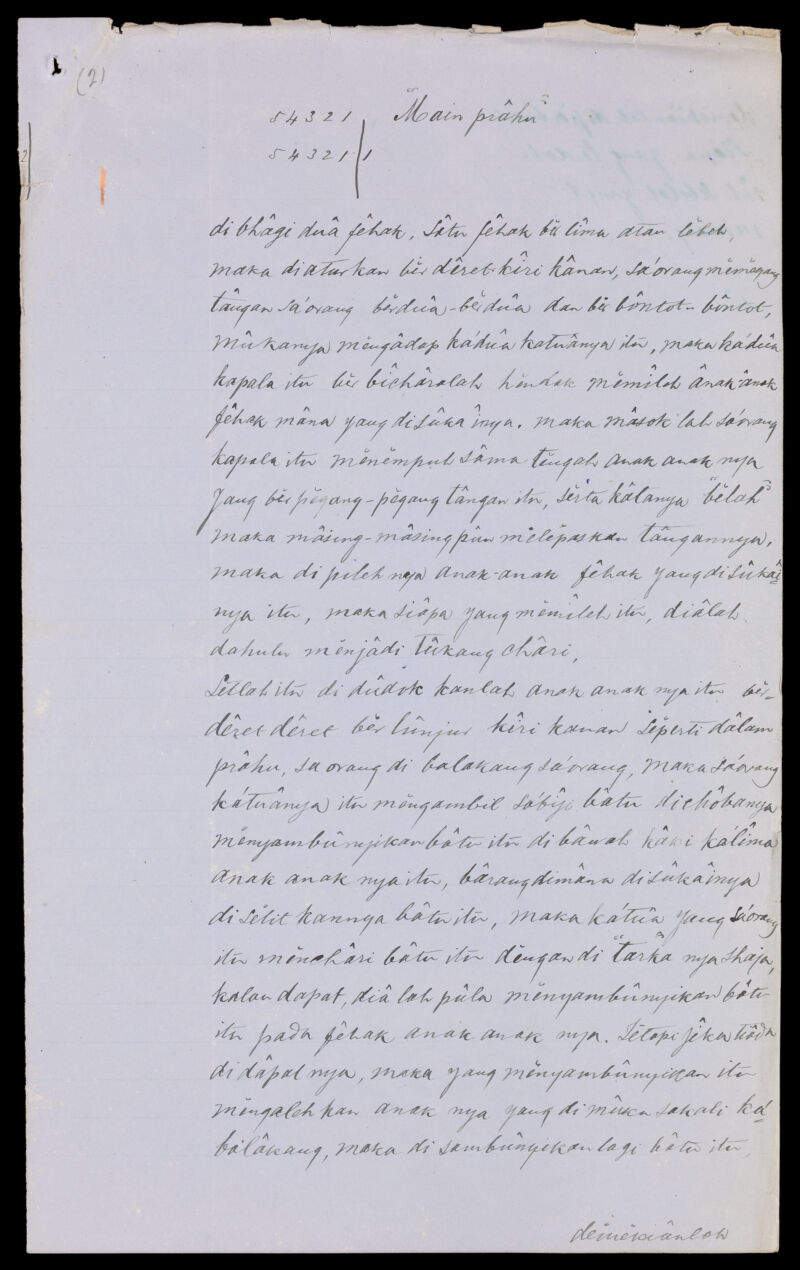 (2)
5 4 3 2 1 "Main prâhu"
5 4 3 2 1 / 1
di bhâgi duâ fêhak, sâtu fêhak bĕr lîma atau lĕbeh,
maka diaturkan bĕr dêret kîri kânan, sa'orang mĕmĕgang
tângan sa'orang bĕrdua-bĕrdua dan bĕr bôntot-bôntot,
mûkanya mĕngâdap ka'dûa katuânya itu, maka ka'dûa
kapala itu bĕr bĭchâralah hĕndak mĕmîleh ânak-anak
fêhak mâna yang disûka înya. maka mâsok lah sa'orang
kapala itu mĕnĕmpuh sâma tĕngah anak anak nya
yang bĕr pĕgang-pĕgang tângan itu, sĕrta kâtanya "bĕlah"
maka mâsing-mâsing pun mĕlĕpaskan tângannya,
maka di pileh nya anak-anak fêhak yang disûkaî
nya itu, maka siâpa yang mĕmîleh itu, diâlah
dahulu mĕnjâdi tûkang châri,
Sĕtlah itu di dûdok kanlah anak anak nya itu bĕr-
dêret dêret bĕr lûnjur kîri kanan sĕperti dâlam
prâhu, sa orang di balakang sa'orang, maka sa'orang
ka'tuânya itu mĕngambil sa'bîji bâtu dichôbanya
mĕnyambûnyikan bâtu itu di bâwah kâki ka'lîma
anak anak nya itu, bârang dimâna disûkaînya
disĕlit kannya bâtu itu, maka ka'tûa yang sa'orang
itu mĕnchâri bâtu itu dĕngan di "tarka" nya shaja,
kalau dapat, diâ lah pûla mĕnyambûnyikan bâtu
itu pada fêhak anak anak nya. Tĕtapi jêka tiâda
di dâpat nya, maka yang mĕnyambûnyikan itu
mĕngaleh kan anak nya yang di mûka sakali ka'-
balâkang, maka di sambûnyikan lagi bâtu itu,
dĕmĕkiânlah